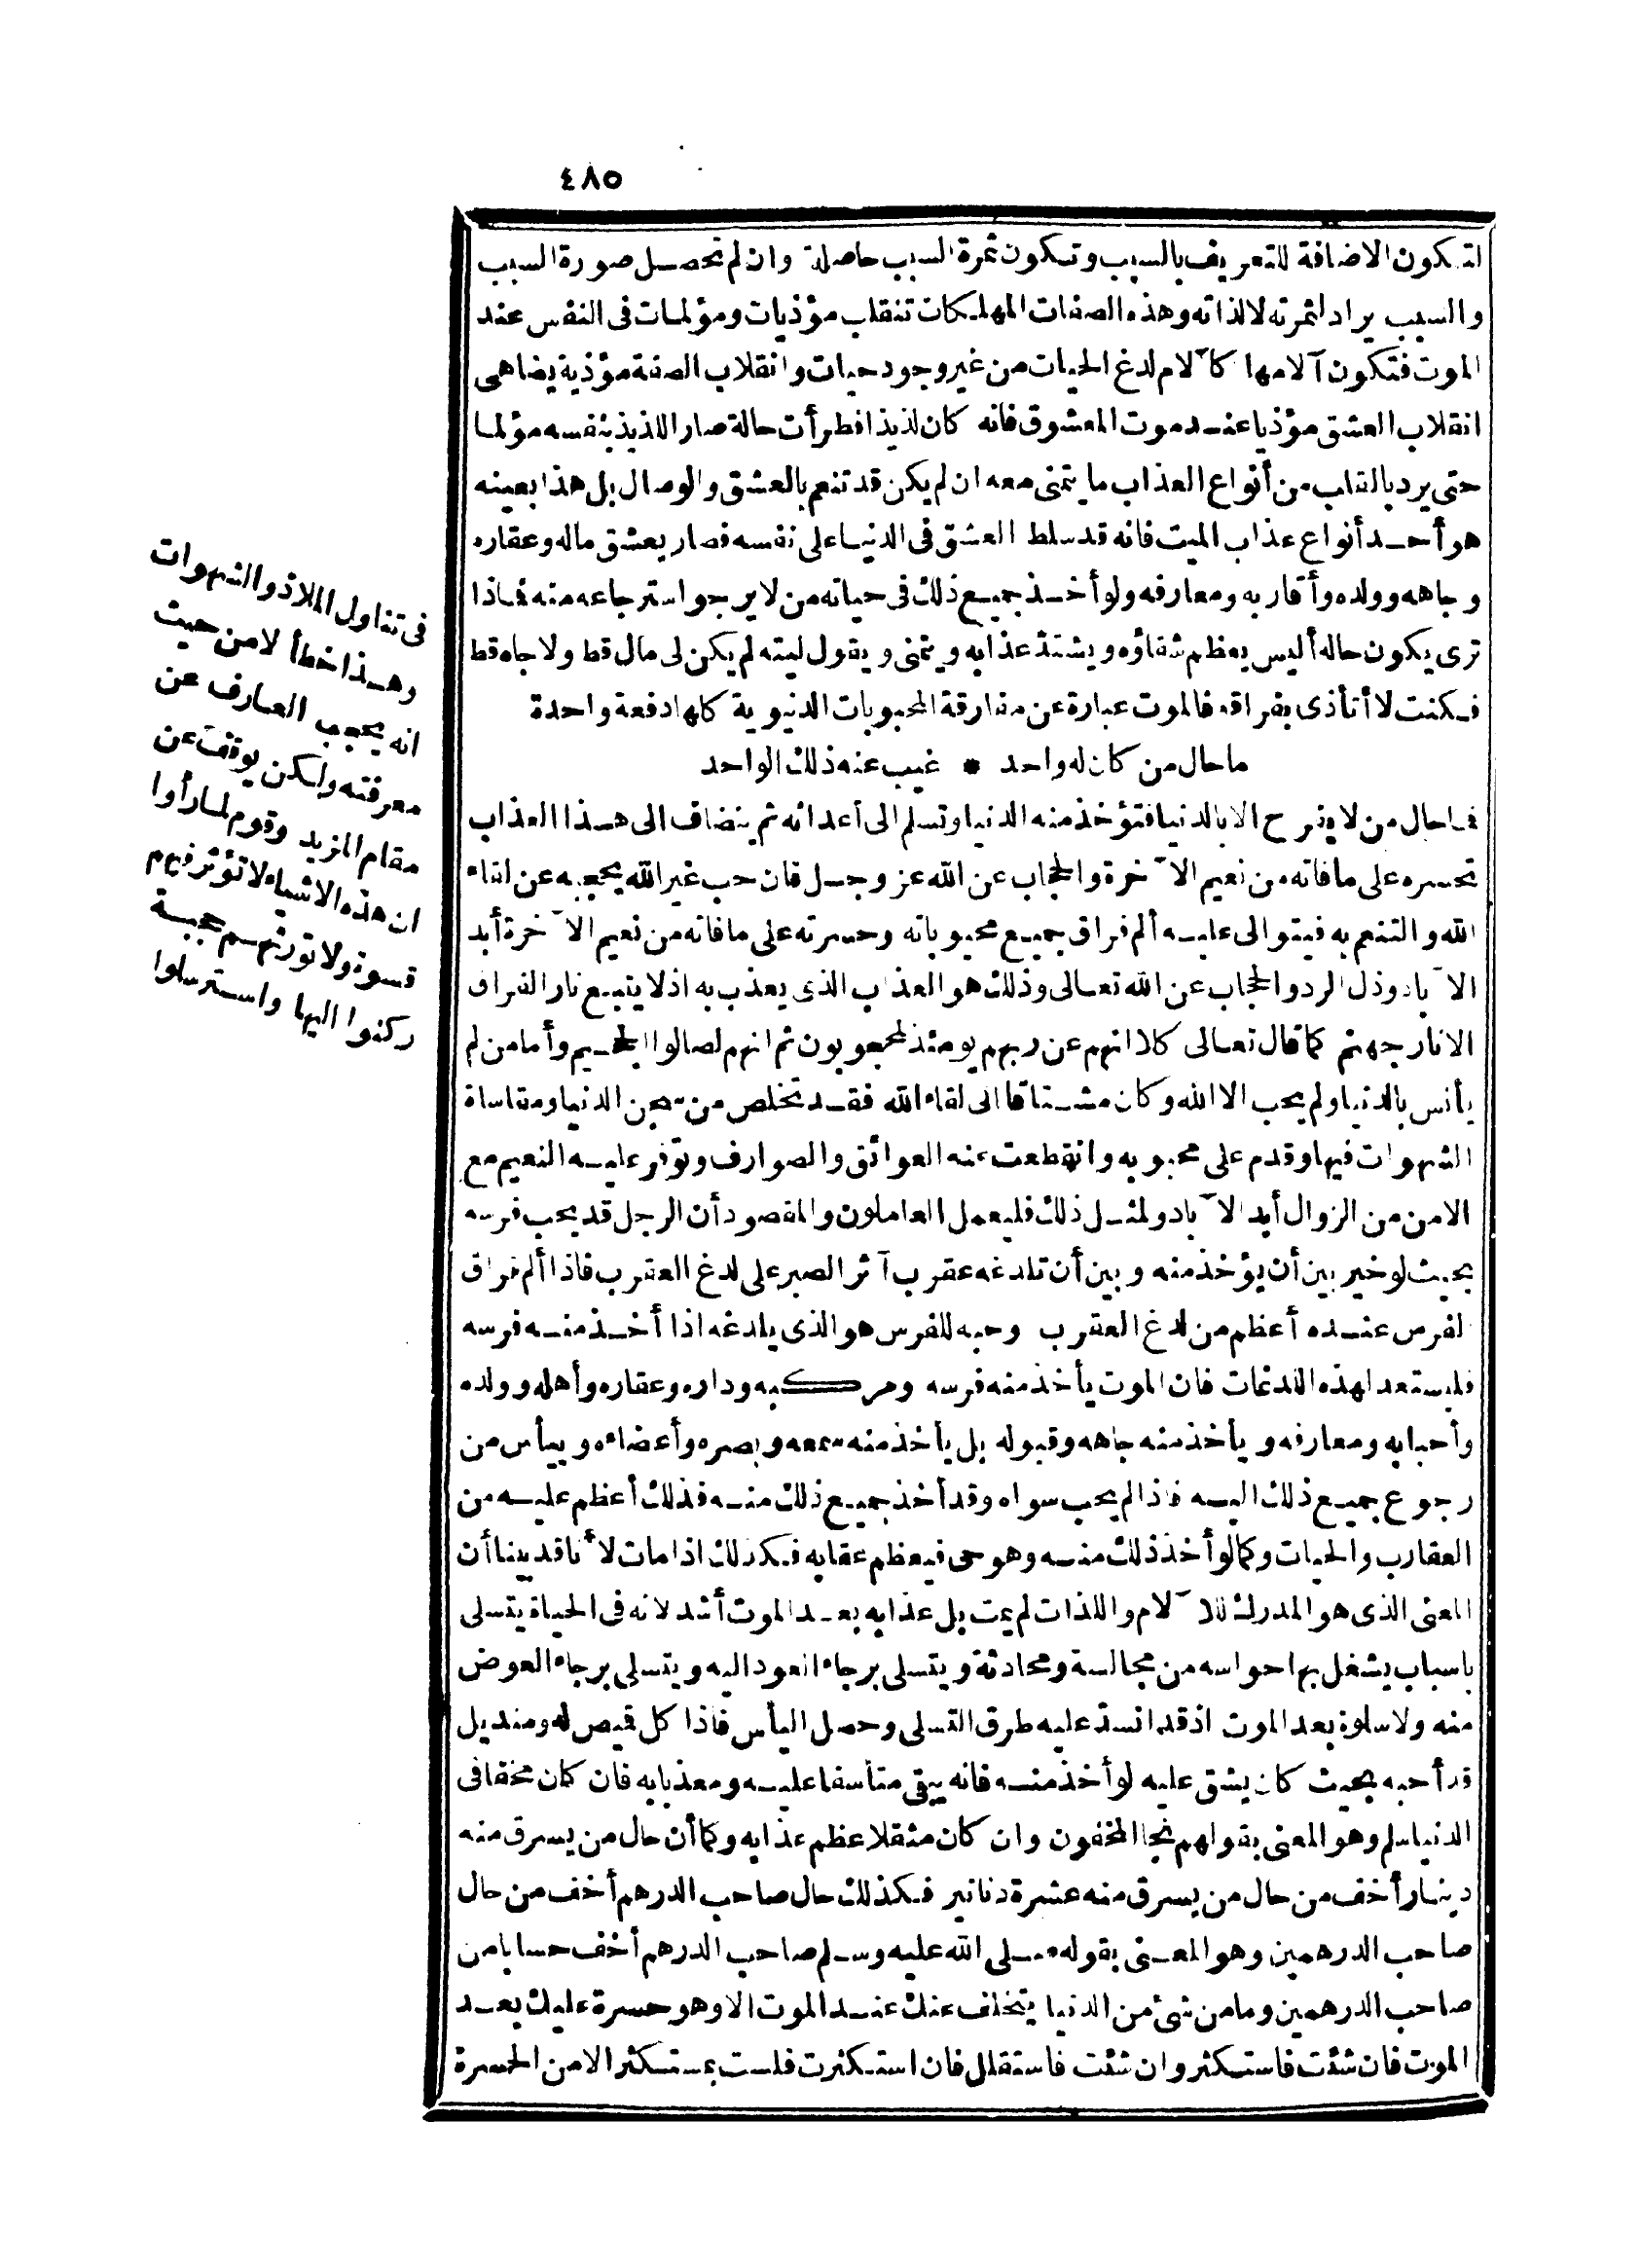 ٤٨٥
لتكون الاضافة للتعريف بالسبب وتكون ثمرة السبب حاصلة وان لم تحصل صورة السبب
والسبب يراد لثمرته لا لذاته وهذه الصفات المهلكات تنقلب مؤذيات ومؤلمات فى النفس عند
الموت فتكون آلامها كآلام لدغ الحيات من غير وجود حيات وانقلاب الصفة مؤذية يضاهى
انقلاب العشق مؤذيا عند موت المعشوق فانه كان لذيذا فطرأت حالة صار اللذيذ بنفسه مؤلما
حتى يرد بالقلب من أنواع العذاب ما يتمنى معه ان لم يكن قد تنعم بالعشق والوصال بل هذا بعينه
هو أحد أنواع عذاب الميت فانه قد سلط العشق فى الدنيا على نفسه فصار يعشق ماله وعقاره
وجاهه وولده وأقاربه ومعارفه ولو أخذ جميع ذلك فى حياته من لا يرجو استرجاعه منه فماذا
ترى يكون حاله أليس يعظم شقاؤه ويشتد عذابه ويتمنى ويقول ليته لم يكن لى مال قط ولا جاه قط
فكنت لا أتأذى بفراقه فالموت عبارة عن مفارقة المحبوبات الدنيوية كلها دفعة واحدة
ما حال من كان له واحد * غيب عنه ذلك الواحد
فما حال من لا يفرح الا بالدنيا فتؤخذ منه الدنيا وتسلم الى أعدائه ثم ينضاف الى هذا العذاب
تحسره على ما فاته من نعيم الآخرة والحجاب عن الله عز وجل فان حب غير الله يحجبه عن لقاء
الله والتنعم به فيتوالى عليه ألم فراق جميع محبوباته وحسرته على ما فاته من نعيم الآخرة أبد
الآباد وذل الرد والحجاب عن الله تعالى وذلك هو العذاب الذى يعذب به اذ لا يتبع نار الفراق
الا نار جهنم كما قال تعالى كلا انهم عن ربهم يومئذ لمحجوبون ثم انهم لصالوا الجحيم وأما من لم
يأنس بالدنيا ولم يحب الا الله وكان مشتاقا الى لقاء الله فقد تخلص من سجن الدنيا ومقاساة
الشهوات فيها وقدم على محبوبه وانقطعت عنه العوائق والصوارف وتوفر عليه النعيم مع
الامن من الزوال أبد الآباد ولمثل ذلك فليعمل العاملون والمقصود أن الرجل قد يحب فرسه
بحيث لو خير بين أن يؤخذ منه وبين أن تلدغه عقرب آثر الصبر على لدغ العقرب فاذا ألم فراق
لفرس عنده أعظم من لدغ العقرب وحبه للفرس هو الذى يلدغه اذا أخذ منه فرسه
فليستعد لهذه اللدغات فان الموت يأخذ منه فرسه ومركبه وداره وعقاره وأهله وولده
وأحبابه ومعارفه ويأخذ منه جاهه وقبوله بل يأخذ منه سمعه وبصره وأعضاءه وييأس من
رجوع جميع ذلك اليه فاذا لم يحب سواه وقد أخذ جميع ذلك منه فذلك أعظم عليه من
العقارب والحيات وكما لو أخذ ذلك منه وهو حى فيعظم عقابه فكذلك اذا مات لأنا قد بينا أن
المعنى الذى هو المدرك للآلام واللذات لم يمت بل عذابه بعد الموت أشد لانه فى الحياة يتسلى
باسباب يشغل بها حواسه من مجالسة ومحادثة ويتسلى برجاء العود اليه ويتسلى برجاء العوض
منه ولا سلوة بعد الموت اذ قد انسد عليه طرق التسلى وحصل اليأس فاذا كل قميص له ومنديل
قد أحبه بحيث كان يشق عليه لو أخذ منه فانه يبقى متأسفا عليه ومعذبا به فان كان مخفا فى
الدنيا سلم وهو المعنى بقولهم نجا المخفون وان كان مثقلا عظم عذابه وكما أن حال من يسرق منه
دينار أخف من حال من يسرق منه عشرة دنانير فكذلك حال صاحب الدرهم أخف من حال
صاحب الدرهمين وهو المعنى بقوله صلى الله عليه وسلم صاحب الدرهم أخف حسابا من
صاحب الدرهمين وما من شئ من الدنيا يتخلف عنك عند الموت الا وهو حسرة عليك بعد
الموت فان شئت فاستكثر وان شئت فاستقلل فان استكثرت فلست بمستكثر الا من الحسرة
فى تناول الملاذ والشهوات
وهذا خطأ لا من حيث
انه يحجب العارف عن
معرفته ولكن يوقف عن
مقام المزيد وقوم لما رأوا
ان هذه الاشياء لا تؤثر فيهم
قسوة ولا تورثهم حجبة
ركنوا اليها واسترسلوا